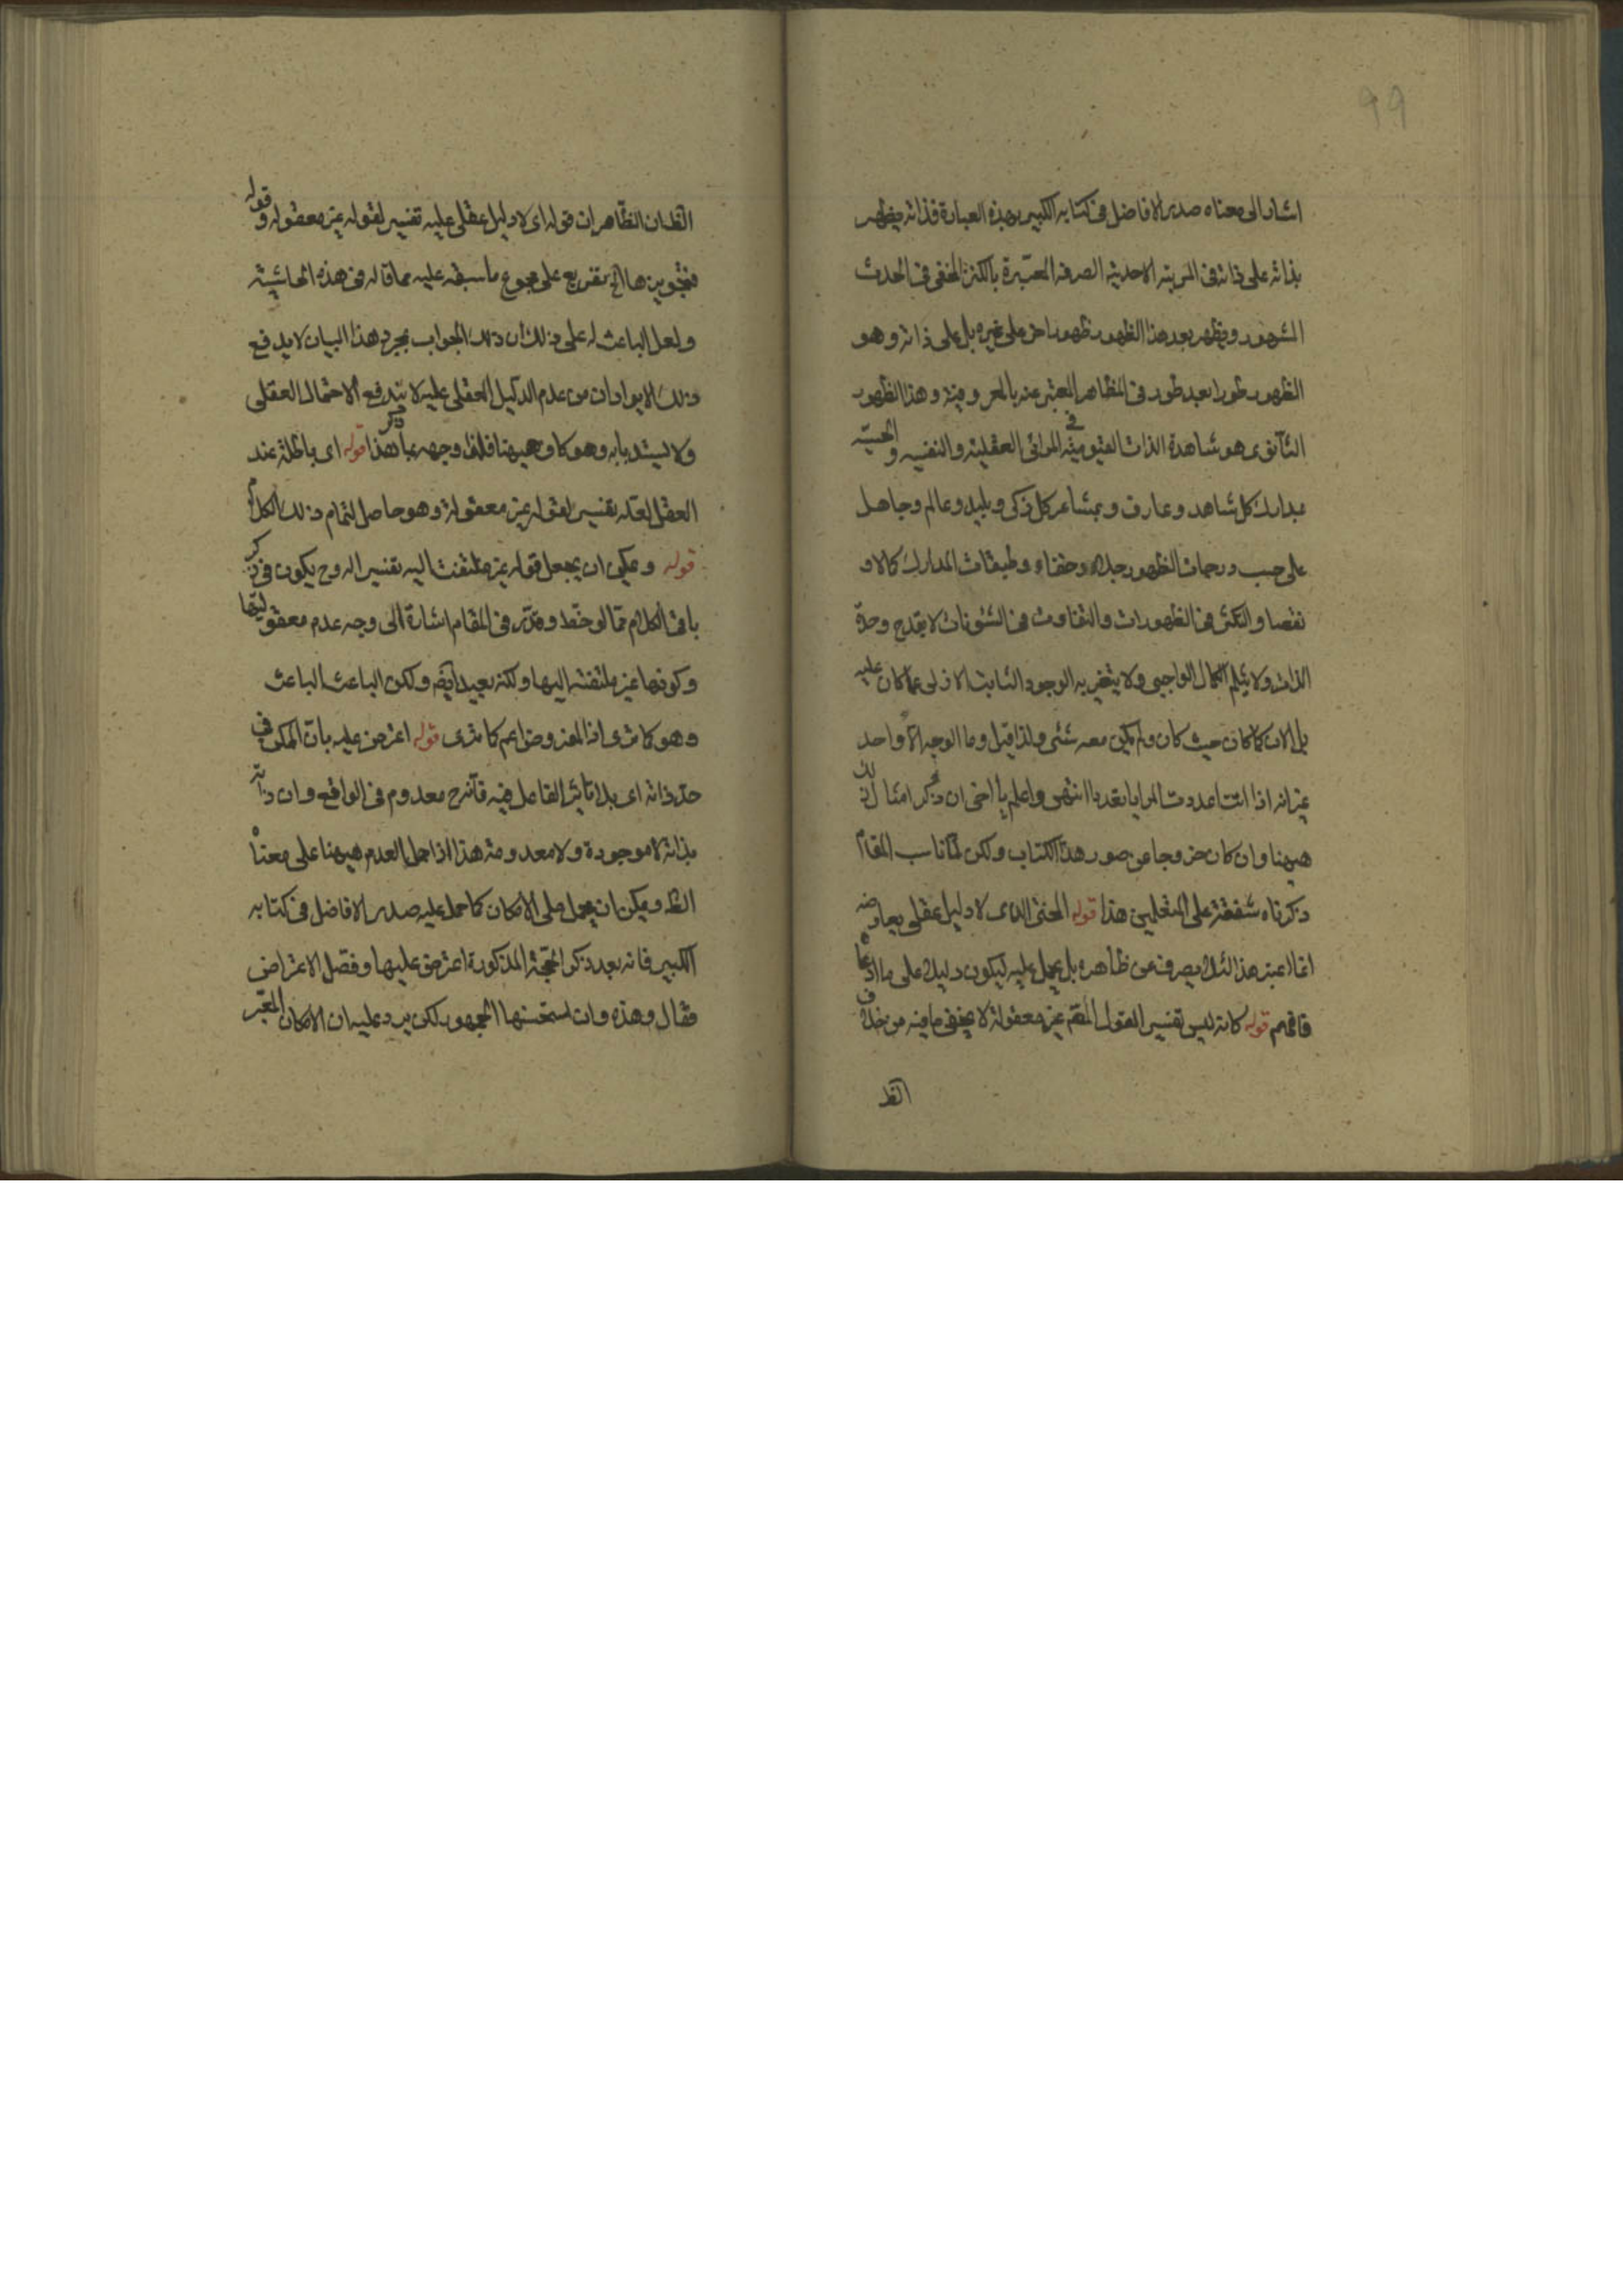 99
اشار الى معناه صدر الافاضل فى كتابه الكبير بهذه العبارة فذاته يظهر
بذاته على ذاته فى المرتبة الاحدية الصرفه المعبّرة بالكنز المخفى فى الحدث
المشهور ويظهر بعد هذا الظهور ظهورا اخر على غيره بل على ذاته وهو
الظهور طورا بعد طور فى المظاهر المعبّر عنه بالمعروفية وهذا الظهور
الثانوى هو شاهدة الذات القيومية فى المرائى العقلية والنفسيه والحسيّه
بمدارك كل شاهد وعارف وبمشاعر كل ذكى وبليد وعالم وجاهل
على حسب درجات الظهور جلاء وخفاء وطبقات المدارك كمالا و
نقصا والتكثر فى الظهورات والتفاوت فى الشئونات لا يقدح وحدة
الذات ولا يثلم الكمال الواجبى ولا يتغير به الوجود الثابت الازلى عما كان عليه
بل الان كما كان حيث كان ولم يكن معه شئى ولذا قيل وما الوجه الا واحد
غير انه اذا انت اعددت المرايا تعددا انتهى واعلم يا اخى ان ذكر امثال ذلك
هيهنا وان كان خروجا عن صور هذا الكتاب ولكن لما ناسب المقام
ذكرناه شفقة على المتعلمين هذا قوله المحشى الذى لا دليل عقلى يعارضه
انما اعتبر هذا لئلا يصرفه عن ظاهره بل يحمل عليه ليكون دليلا على ما ادعاه
فافهم قوله كانه ليس تفسير القول المقم غير معقولة لا يخفى ما فيه من خلاف
الظ
الظ ان الظاهر ان قوله اى لا دليل عقلى عليه تفسير لقوله غير معقوله وقوله
فتجويزها الخ تفريع على مجموع ما سبقه عليه مما قاله فى هذه الحاشية
ولعل الباعث له على ذلك ان ذلك الجواب بمجرد هذا البيان لا يدفع
ذلك الايراد ان من عدم الدليل العقلى عليه لا يندفع الاحتمال العقلى
ولا يستد بابه وهو كاف هيهنا فلهذا وجهه بما ذكر هذا قوله اى باطلة عند
العقل لعله تفسير لقوله غير معقولة وهو حاصل لتمام ذلك الكلام
قوله ويمكن ان يجعل قوله غير ملتفت اليه تفسير اله وح يكون فى ذكر
باقى الكلام مما لوحظ وقدّر فى المقام اشارة الى وجه عدم معقوليتها
وكونها غير ملتفته اليها ولكنه بعيد ايضم ولكن الباعث الباعث
وهو كما ترى اذ المفروض اعم كما ترى قوله اعترض عليه بان الممكن فى
حد ذاته اى بلا تاثير الفاعل فيه فانه ح معدوم فى الواقع وان ذاته
بذاته لا موجودة ولا معدومة هذا اذا حمل العدم هيهنا على معناه
الظ ويمكن ان يحمل على الامكان كما حمل عليه صدر الافاضل فى كتابه
الكبير فانه بعد ذكر الحجة المذكورة اعترض عليها وفصل الاعتراض
فقال وهذه وان استحسنها الجمهور لكن يرد عليه ان الامكان المعبّر